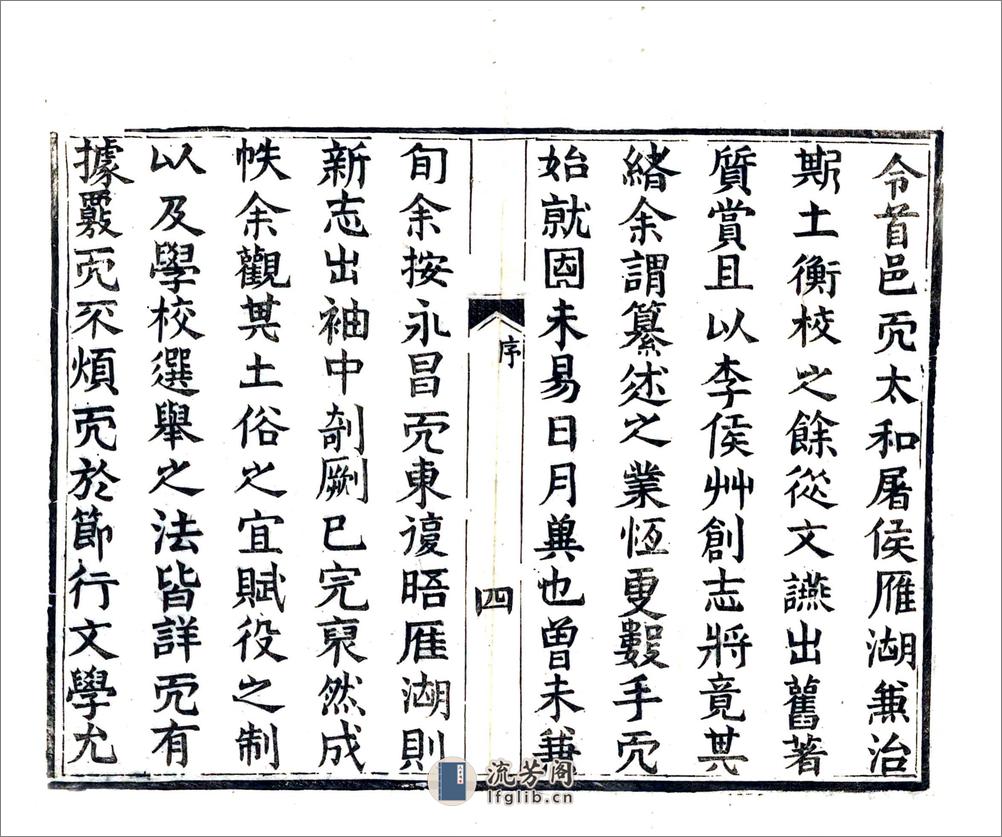 令首邑而太和屠侯雁湖兼治
斯土衡校之餘從文讌出舊著
質賞且以李侯艸創志將竟其
緒余謂纂述之業恆更數手而
始就固未易日月冀也曾未兼
序
四
旬余按永昌而東復晤雁湖則
新志出袖中剞劂已完裒然成
帙余觀其土俗之宜賦役之制
以及學校選舉之法皆詳而有
據覈而不煩而於節行文學尤
流芳阁
lfglib.cn